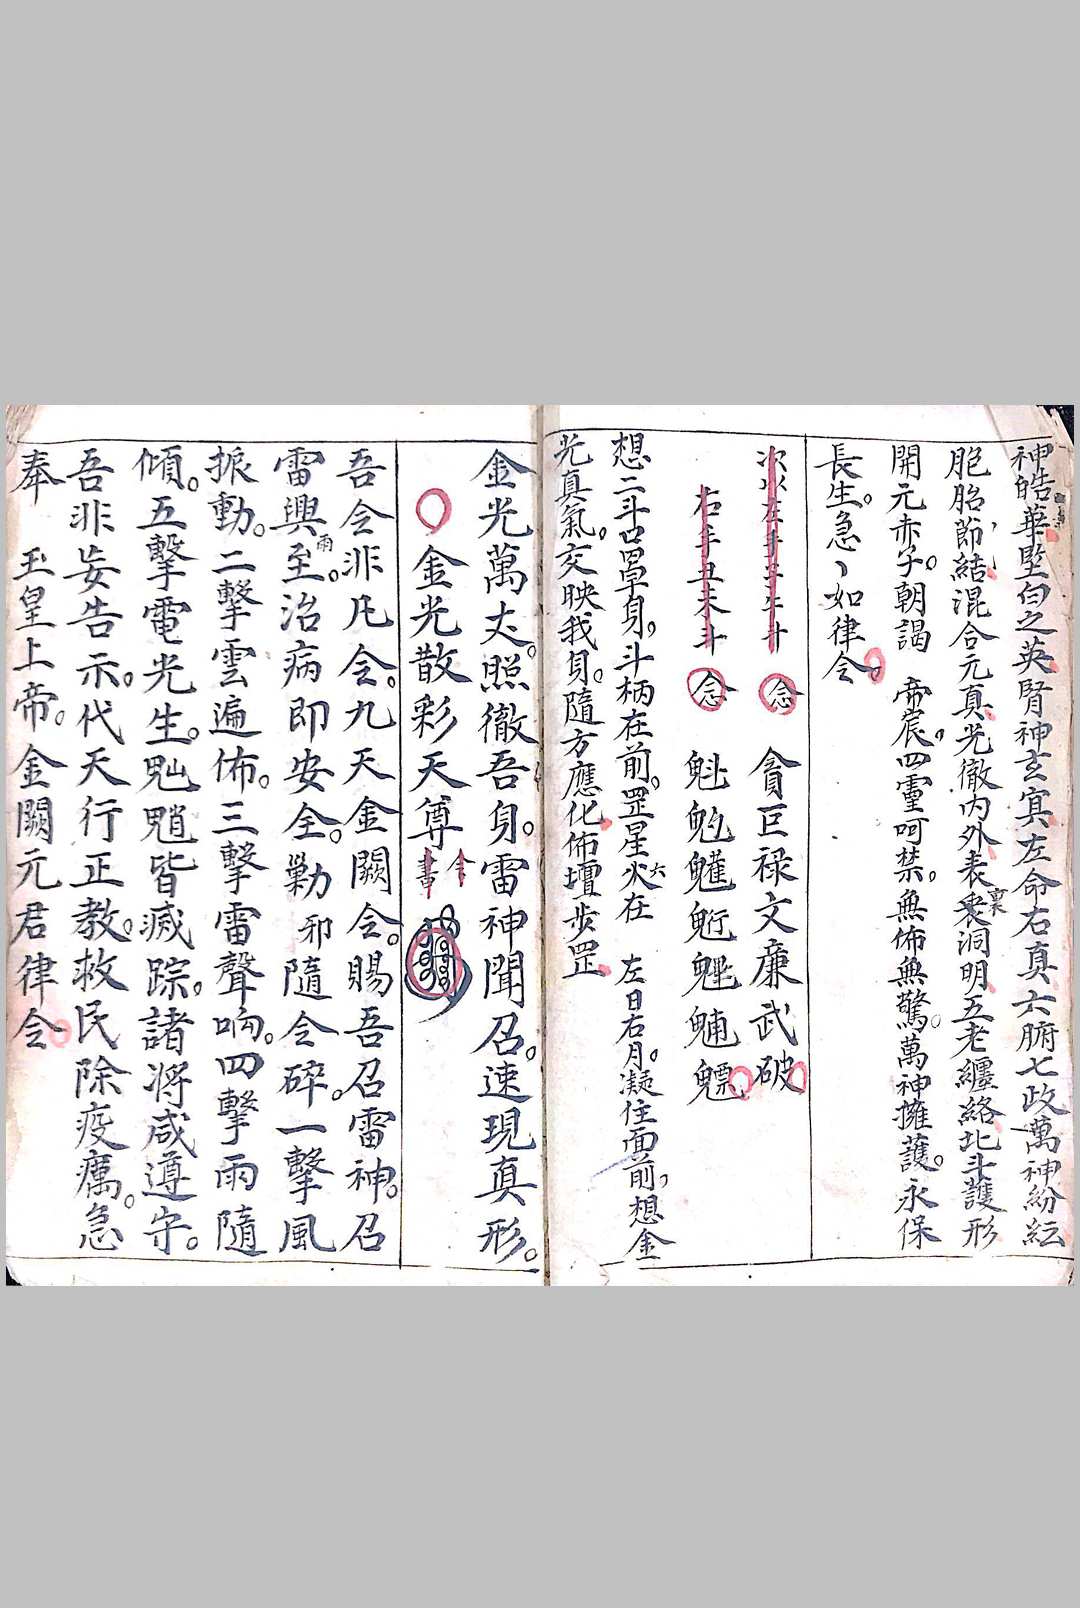 神皓華堅白之英腎神玄寅左命右真六腑七政萬神紛紜
胞胎節結混合元真光徹內外表裏洞明五老纏絡北斗護形
開元赤子。朝謁 帝宸。四靈呵禁。無佈無驚。萬神擁護。永保
長生。急丶如律令
次以左手子午斗 念 貪巨祿文廉武破
右手丑未斗 念 魁𩲃䰢魓
想二斗口罩身,斗柄在前。罡星火在六 左日右月。凝住面前,想金
光真氣。交映我身。隨方應化佈壇步罡
金光萬丈。照徹吾身。雷神聞召。速現真形。
金光散彩天尊 書 令
吾令非凡令。九天金闕令。賜吾召雷神。召
雷興雨至。治病即安全。剿勦邪隨令碎。一擊風
振動。二擊雲遍佈。三擊雷聲响。四擊雨隨
傾。五擊電光生。鬼魈皆滅踪。諸將咸遵守。
吾非妄告示。代天行正教。救民除疫癘。急
奉 玉皇上帝。金闕元君律令